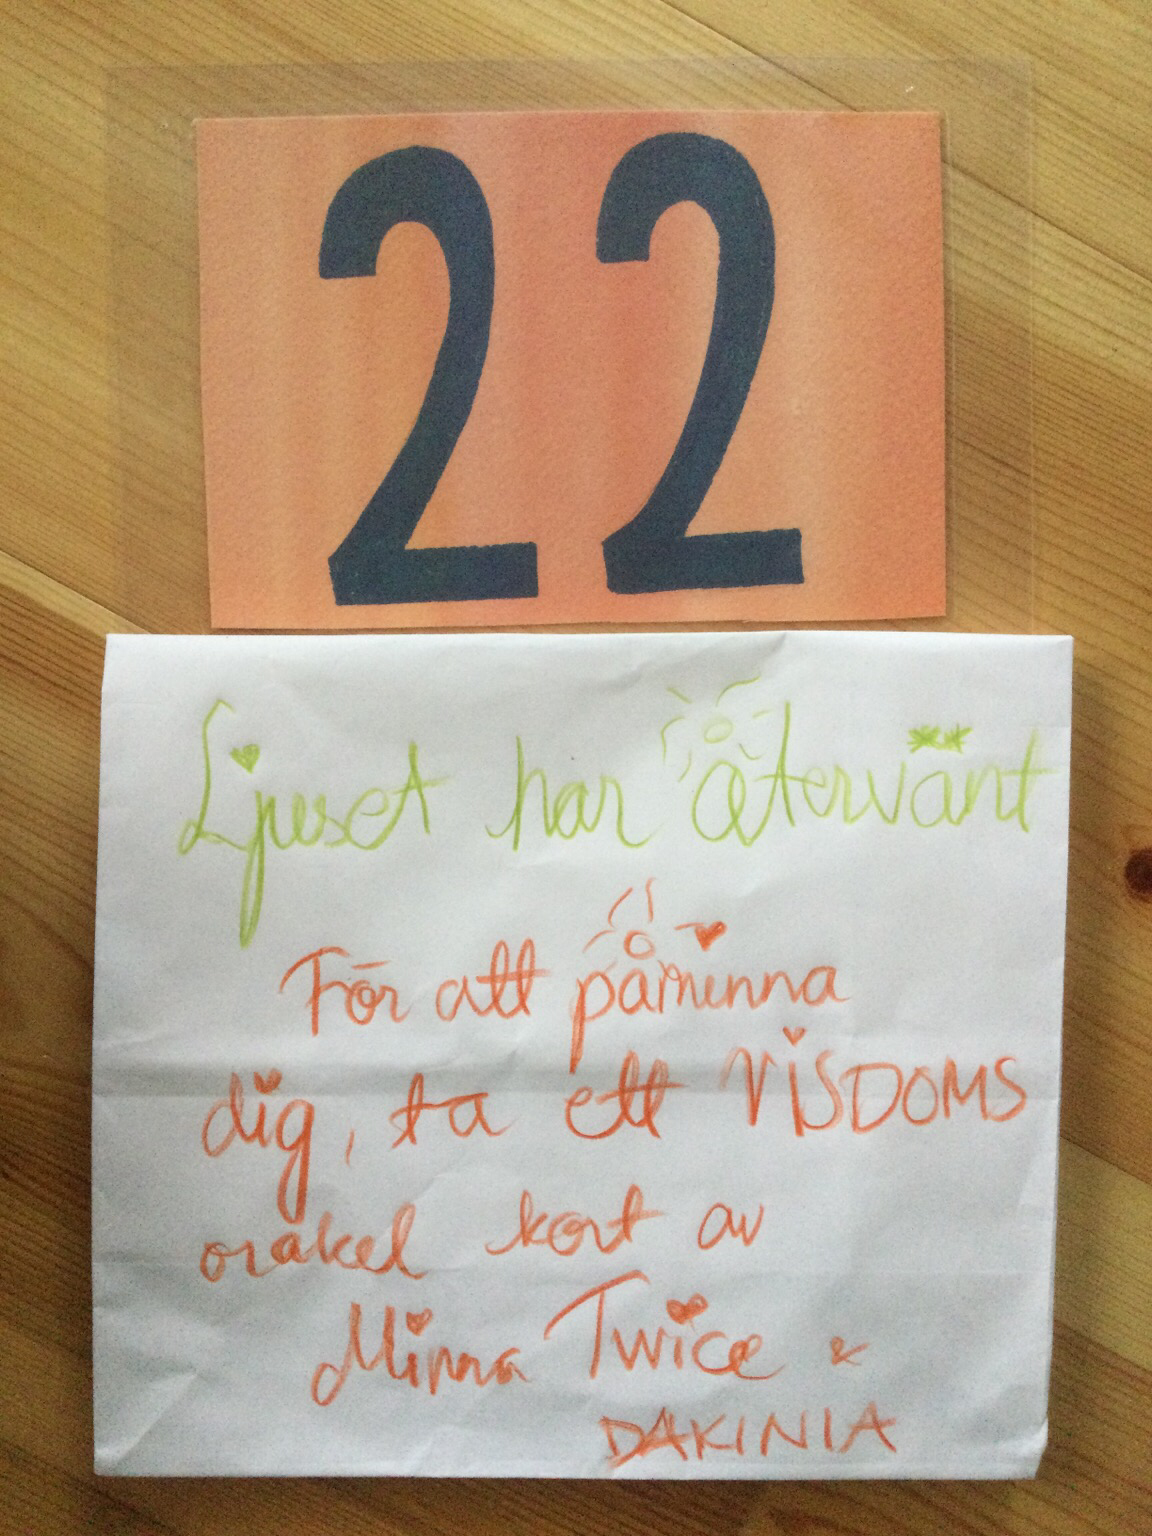 22
Ljuset har återvänt
För att påminna
dig, ta ett VISDOMS
orakel kort av
Minna Twice &
DAKINIA